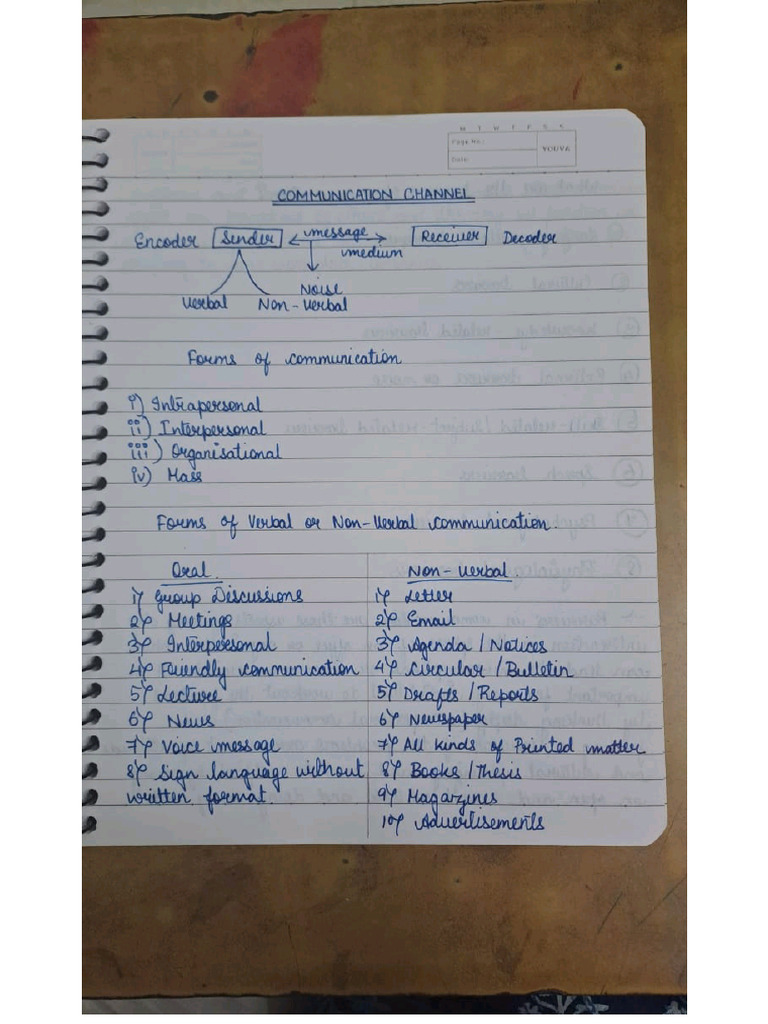 M T W T F S S
Page No.:
Date:
YOUVA
COMMUNICATION CHANNEL
Encoder Sender message Receiver Decoder
medium
Noise
Verbal Non-Verbal
Forms of communication
i) Intrapersonal
ii) Interpersonal
iii) Organisational
iv) Mass
Forms of Verbal or Non-Verbal communication.
Oral.
1) Group Discussions
2) Meetings
3) Interpersonal
4) Friendly communication
5) Lecture
6) News
7) Voice message
8) Sign language without
written format.
Non-Verbal.
1) Letter
2) Email
3) Agenda / Notices
4) Circular / Bulletin
5) Drafts / Reports
6) Newspaper
7) All kinds of Printed matter
8) Books / Thesis
9) Magarzines
10) Advertisements